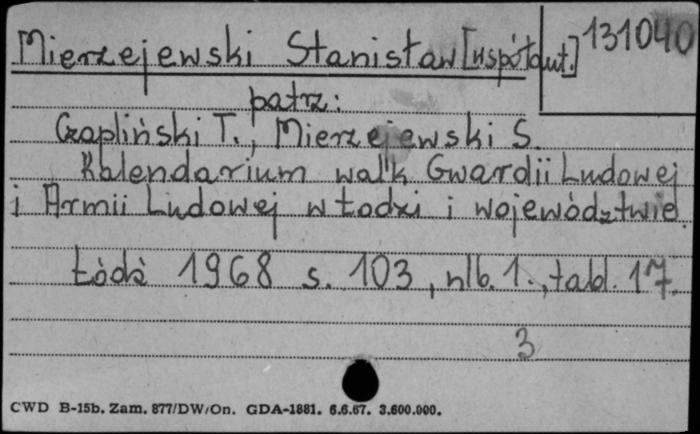 Mierzejewski Stanisław [współaut.] 131040
patrz:
Czapliński T., Mierzejewski S.
Kalendarium walk Gwardii Ludowej
i Armii Ludowej w Łodzi i województwie.
Łódź 1968 s. 103, nlb. 1., tabl. 17.
3
CWD B-15b. Zam. 877/DW/On. GDA-1881. 6.6.67. 3.600.000.